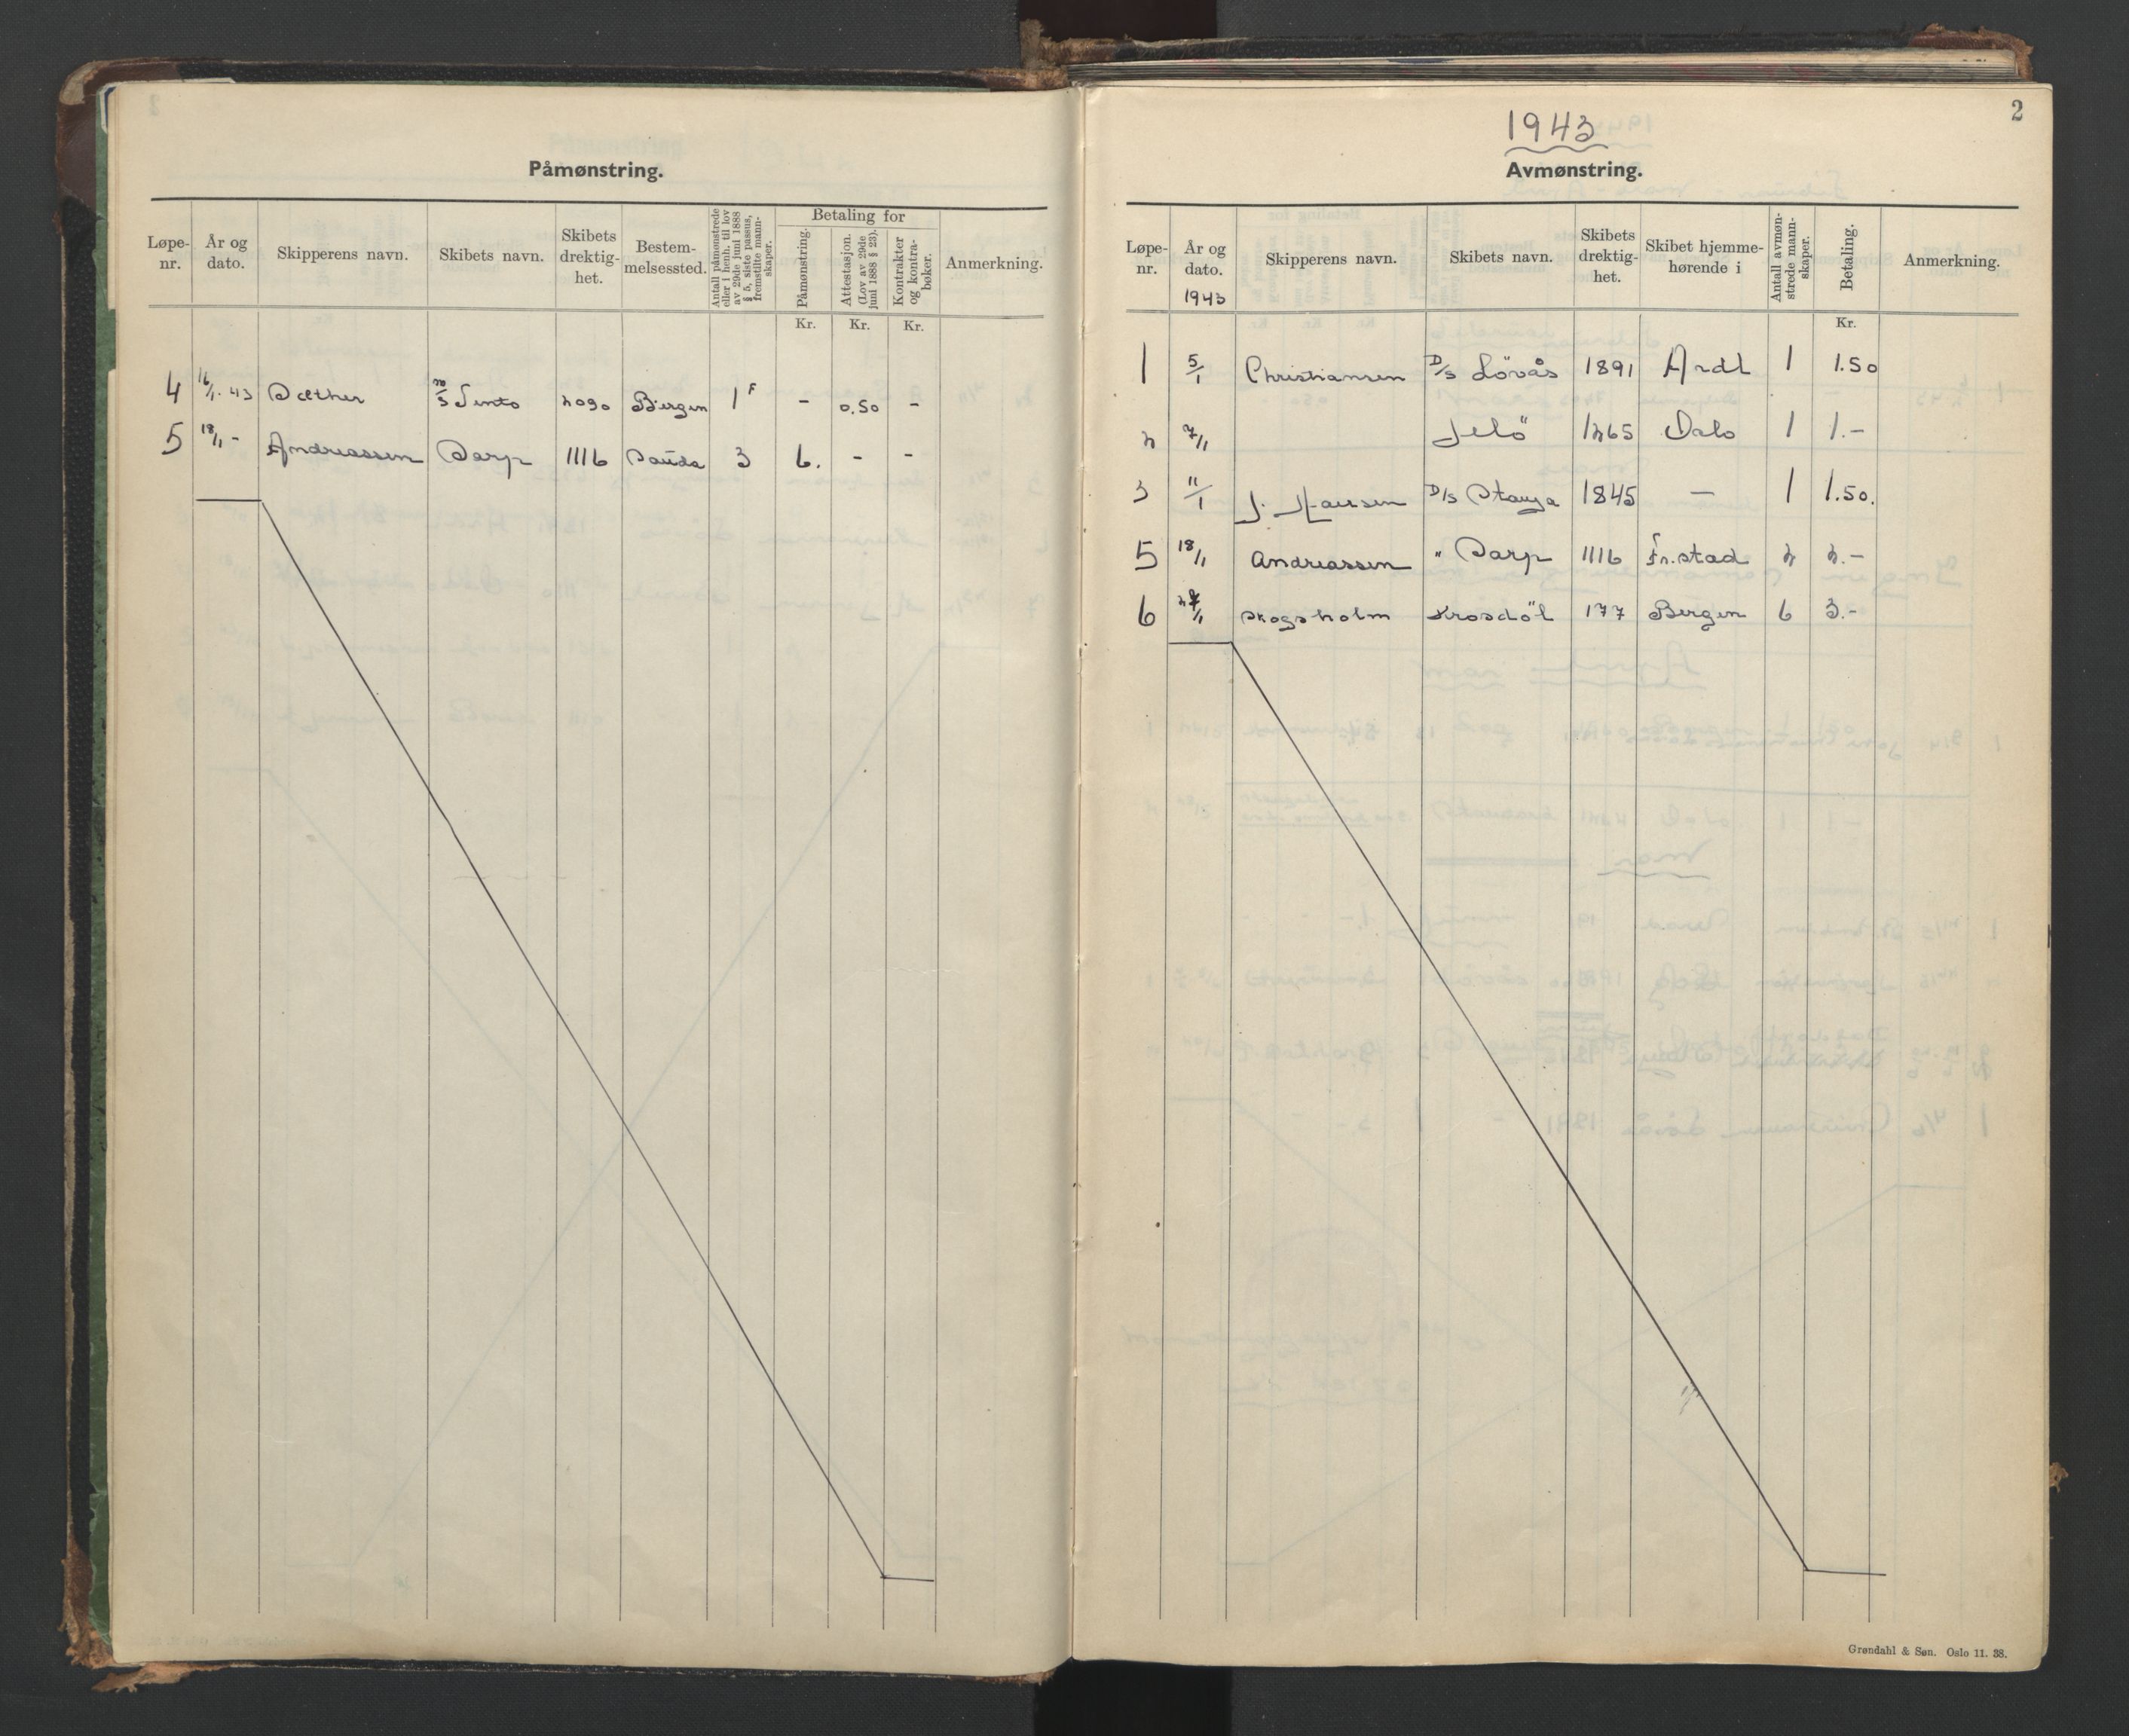 Påmønstring.
Løpe-nr. År og dato. Skipperens navn. Skibets navn. Skibets drektig-het. Bestem-melsessted. Antall påmønstrede eller i henh. til lov av 29de juni 1888 § 5, siste passus, fremstilte mann-skaper. Betaling for Påmønstring. Attestasjon. (Lov av 29de juni 1888 § 23). Kontrakter og kontra-bøker. Anmerkning.
Kr. Kr. Kr.
4 16/1. 43 Sæther m/s Sento 2090 Bergen 1 F - 0.50 -
5 18/1 - Andreassen Sarp 1116 Sauda 3 6. - -
2
1943
Avmønstring.
Løpe-nr. År og dato. 1943 Skipperens navn. Skibets navn. Skibets drektig-het. Skibet hjemme-hørende i Antall avmøn-strede mann-skaper. Betaling. Anmerkning.
Kr.
1 5/1 Christiansen D/S Lövås 1891 Ardl 1 1.50
2 7/1 Jelö 1265 Oslo 1 1.-
3 11/1 J. Hansen D/S Stanja 1845 — 1 1.50.
5 18/1 Andreassen " Sarp 1116 Fr.stad 2 2.-
6 Skogsholm Krosdöl 177 Bergen 6 3.-
Grøndahl & Søn. Oslo 11. 38.